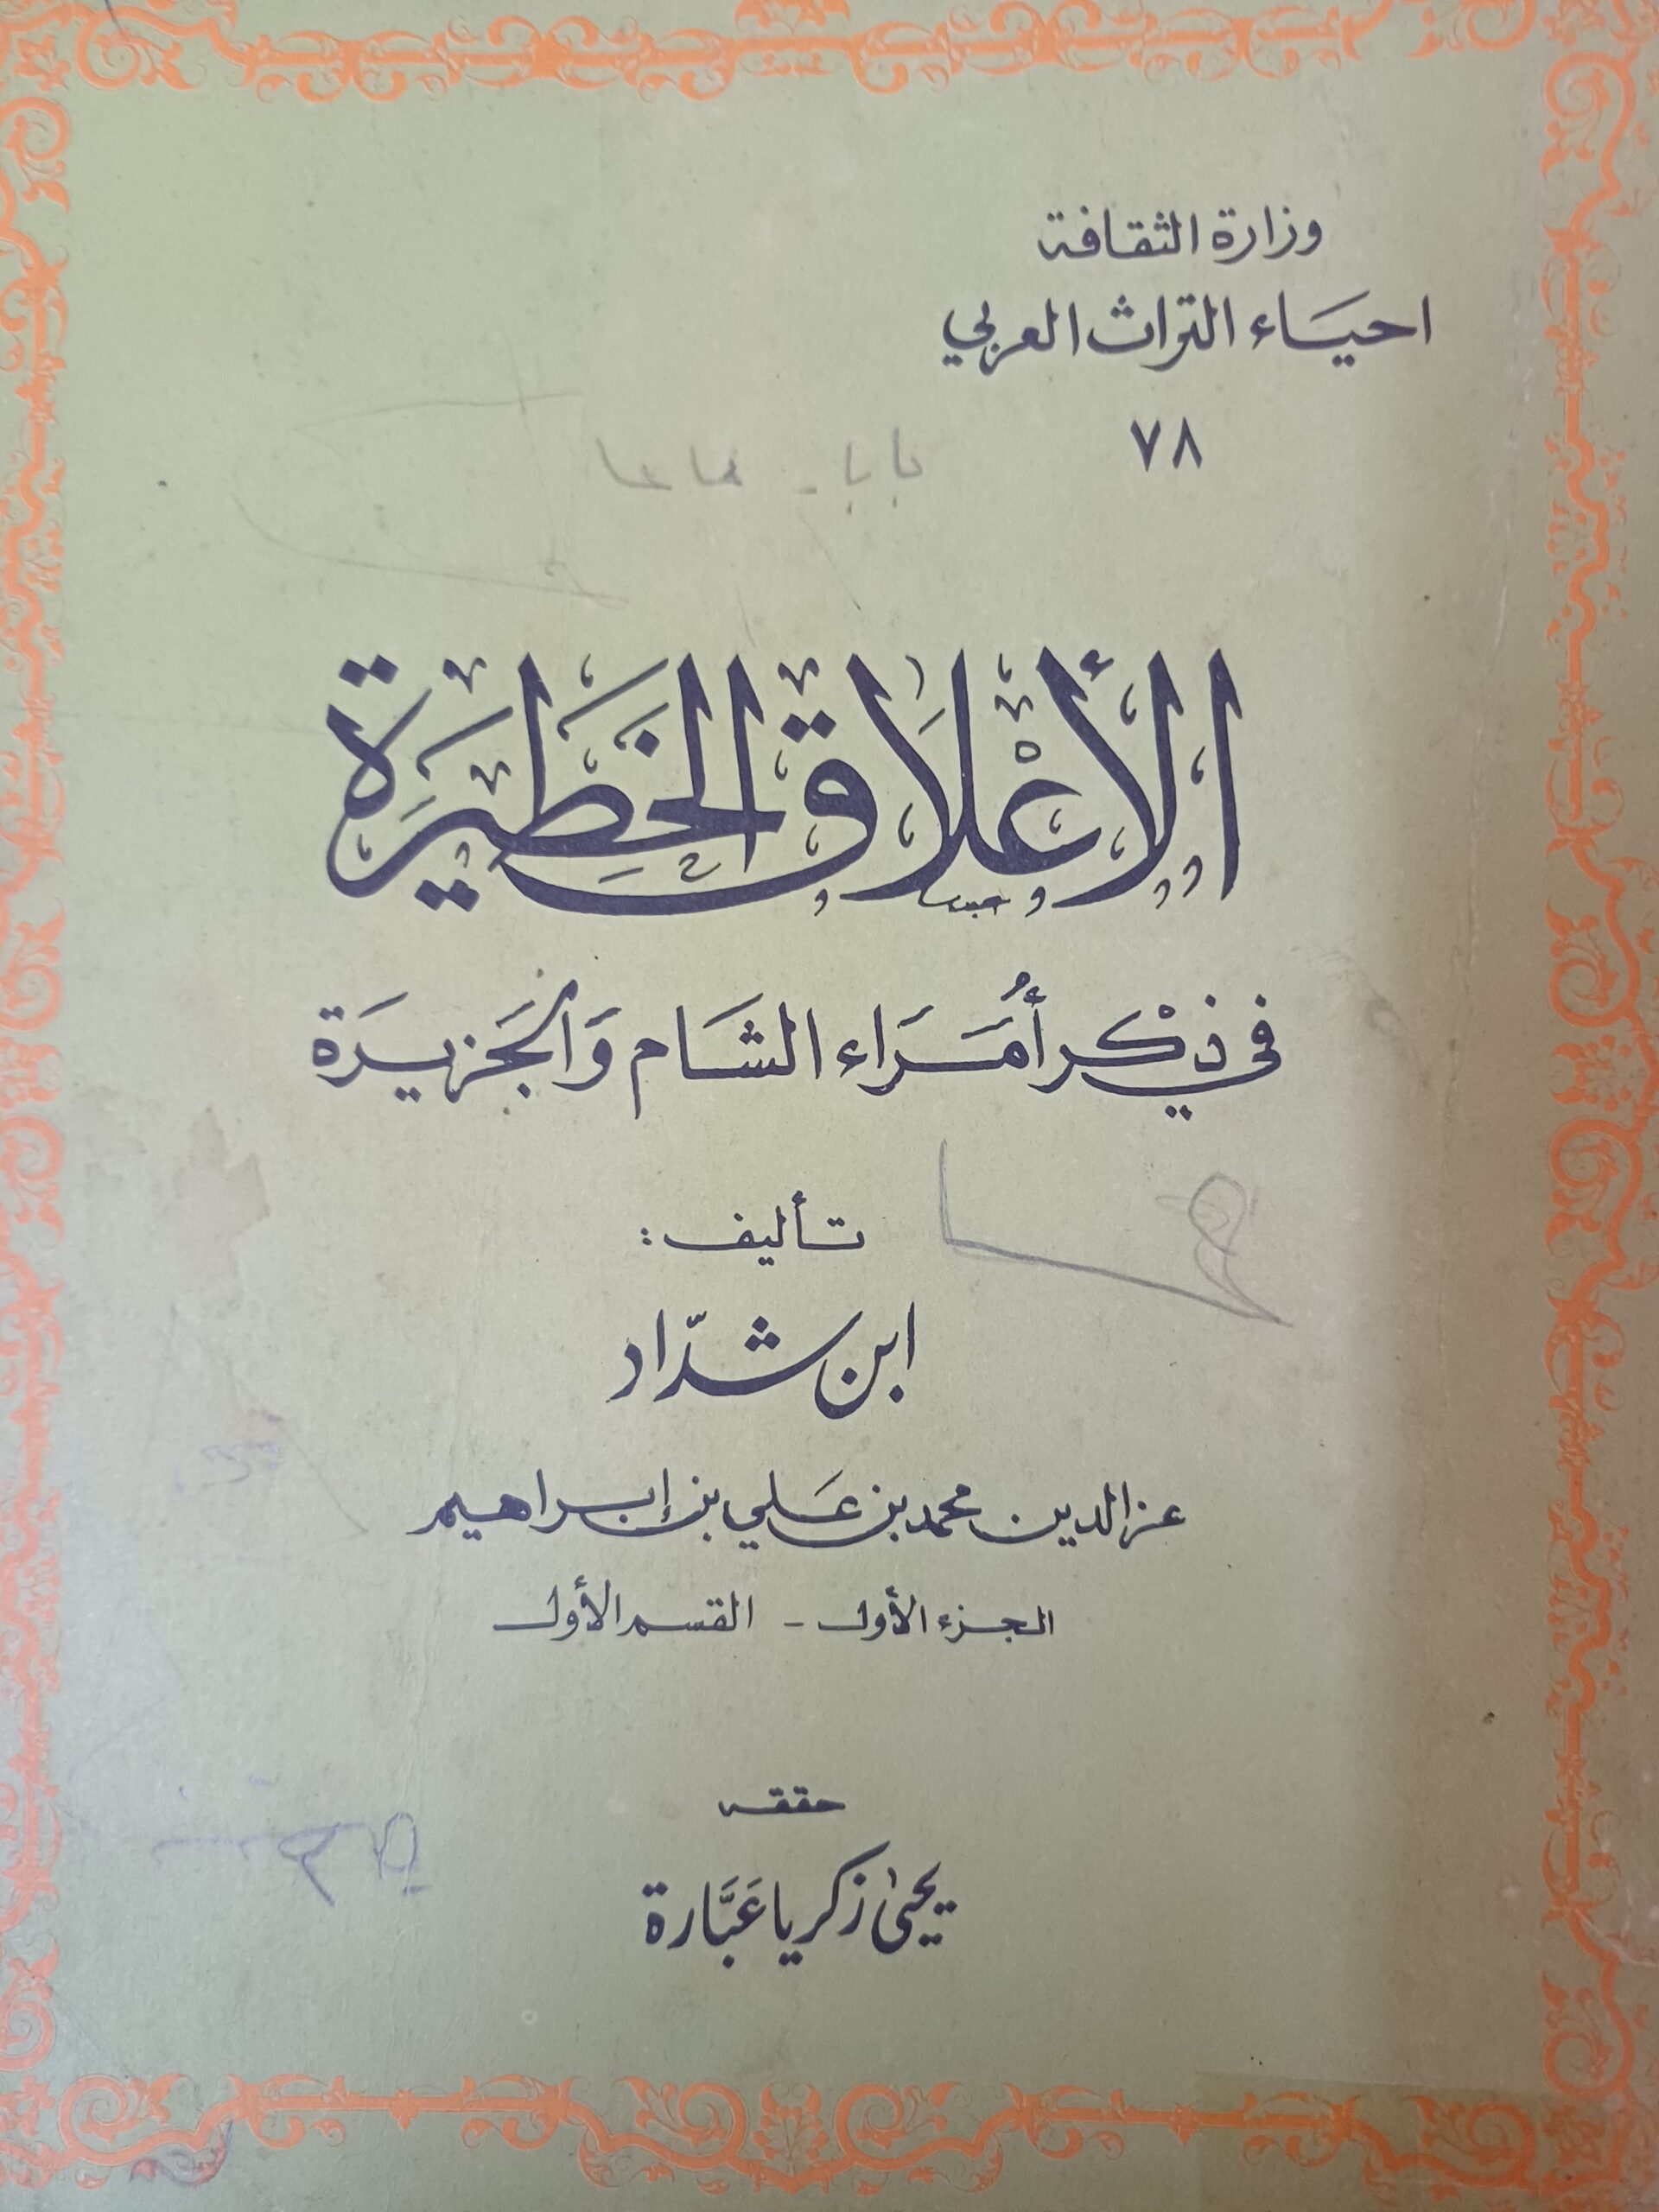 وزارة الثقافة
احيَاء التراث العربي
٧٨
بابا - ماما
الأعْلَاق الخَطِيَرة
في ذِكْر أُمَرَاء الشَام وَالجَزيرَة
تأليف :
ابن شدّاد
عز الدين محمد بن عَلي بن إبراهيم
الجزء الأول - القسم الأول
حققه
يحيىٰ زكريا عَبَّارة